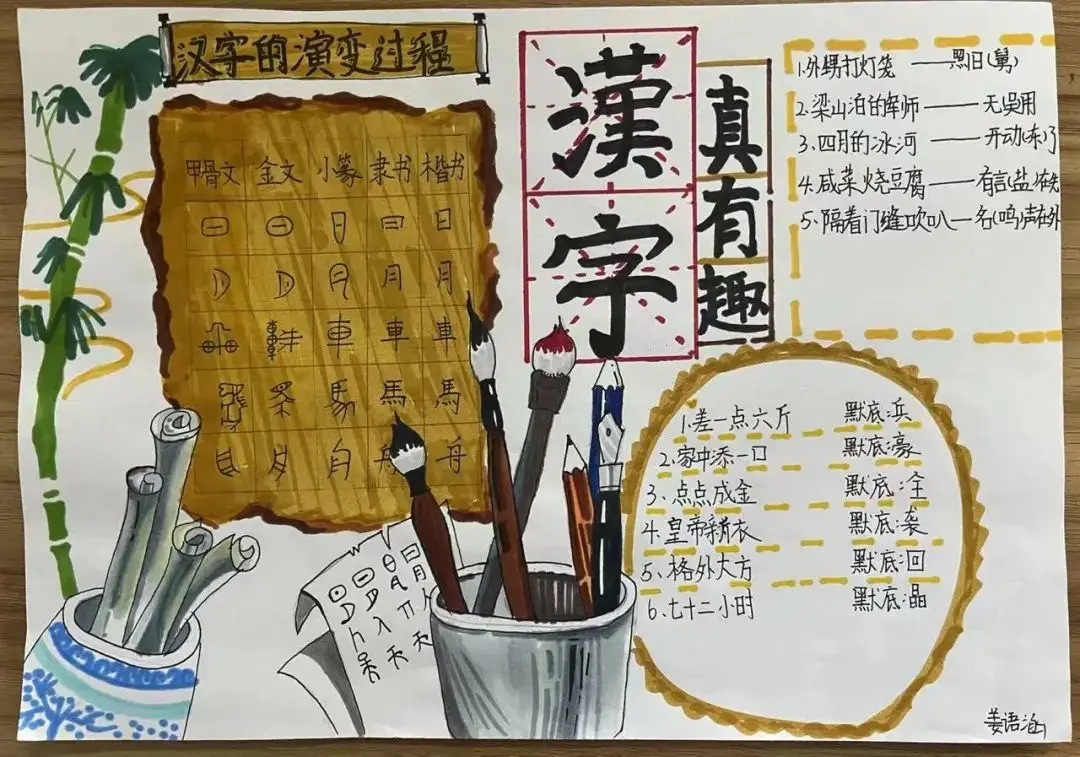 汉字的演变过程
甲骨文 金文 小篆 隶书 楷书
日 日
月 月
車 車 車
馬 馬
舟 舟
漢字
真有趣
1.外甥打灯笼 ——照旧(舅)
2.梁山泊的军师 —— 无吴用
3.四月的冰河 —— 开动(冻)了
4.咸菜烧豆腐 —— 有言(盐)在先
5.隔着门缝吹叭 — 名(鸣)声在外
1.差一点六斤 默底:兵
2.家中添一口 默底:豪
3.点点成金 默底:全
4.皇帝新衣 默底:袭
5.格外大方 默底:回
6.七十二小时 默底:晶
姜语涵